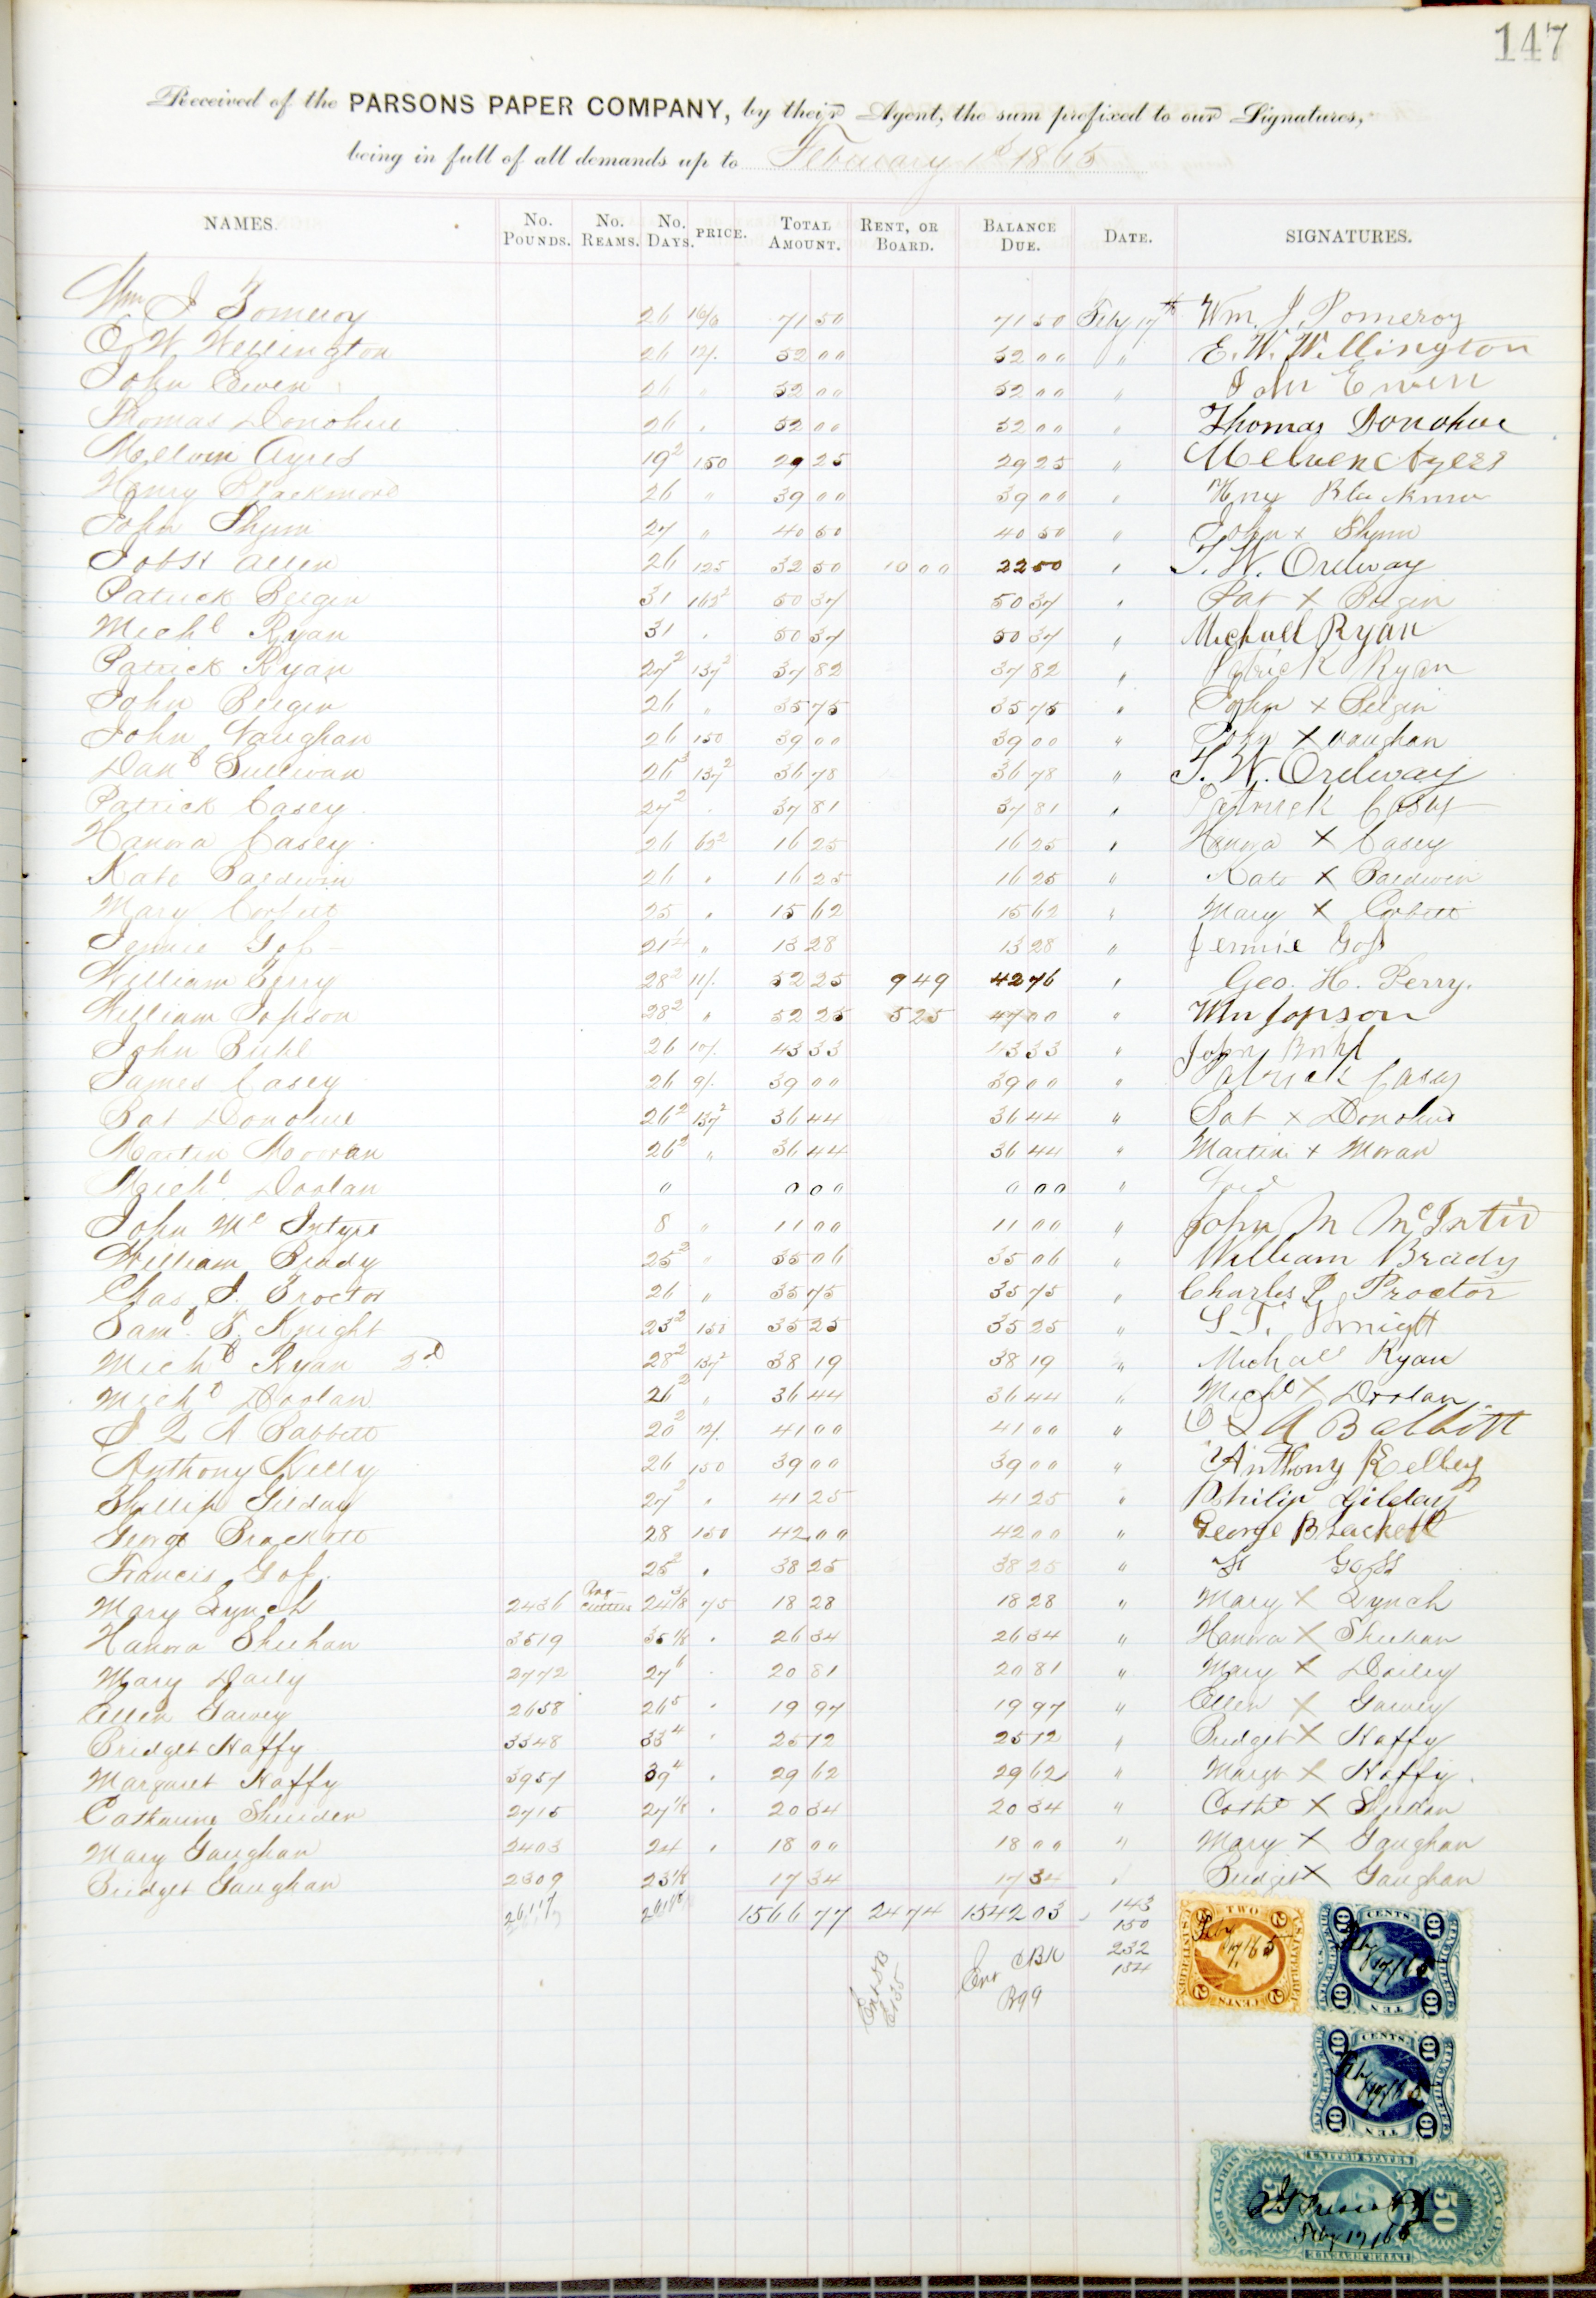 147
Received of the PARSONS PAPER COMPANY, by their Agent, the sum prefixed to our Signatures,
being in full of all demands up to February 1st 1865
NAMES. No. Pounds. No. Reams. No. Days. PRICE. Total Amount. Rent, or Board. Balance Due. Date. SIGNATURES.
Wm J Pomeroy 26 16/6 71 50 71 50 Feby 17th Wm. J. Pomeroy
E W Wellington 26 12/. 52 00 52 00 " E. W. Wellington
John Ewen 26 " 52 00 52 00 " John Ewen
Thomas Donohue 26 " 52 00 52 00 " Thomas Donohue
Melvin Ayres 19² 150 29 25 29 25 " Melven Ayers
Henry Blackmore 26 " 39 00 39 00 " Blackmer
John Flynn 27 " 40 50 40 50 " John x Flynn
Allen 26 125 32 50 10 00 22 50 " T. W. Ordway
Patrick Bergin 31 162² 50 37 50 37 " Pat X Bergin
Michl Ryan 31 " 50 37 50 37 " Michall Ryan
Patrick Ryan 27² 137² 37 82 37 82 " Patrick Ryan
John Bergin 26 " 35 75 35 75 " John x Bergin
John Vaughan 26 150 39 00 39 00 " John X Vaughan
Danl Sullivan 26³ 137² 36 78 36 78 " T. W. Ordway
Patrick Casey 27² " 37 81 37 81 " Patrick Casey
Hanora Casey 26 62² 16 25 16 25 " Hanora X Casey
Kate Baldwin 26 " 16 25 16 25 " Kate X Baldwin
Mary Corbett 25 " 15 62 15 62 " Mary X Corbett
Jennie Gof 21¼ " 13 28 13 28 " Jennie Goff
William Perry 28² 11/. 52 25 9 49 42 76 " Geo. H. Perry.
William Jopson 28² " 52 25 5 25 47 00 " Wm Jopson
John Buhl 26 10/. 43 33 43 33 " John Buhl
James Casey 26 9/. 39 00 39 00 " Patrick Casey
Pat Donohue 26² 137² 36 44 36 44 " Pat x Donohue
Martin Morran 26² " 36 44 36 44 " Martin x Moran
Michl Doolan " 0 00 0 00 "
John Mc Intyre 8 " 11 00 11 00 " John M McIntir
William Brady 25² " 35 06 35 06 " William Brady
Chas P. Proctor 26 " 35 75 35 75 " Charles P. Proctor
Saml T. Knight 23² 150 35 25 35 25 " S. T. Knight
Michl Ryan 2d 28² 137² 38 19 38 19 " Michael Ryan
Michl Doolan 26² " 36 44 36 44 " Michl X Doolan
J Q A Babbitt 20² 12/. 41 00 41 00 " J Q A Babbitt
Anthony Kelly 26 150 39 00 39 00 " Anthony Kelley
Phillip Gilday 27² " 41 25 41 25 " Philip Gilday
George Brackett 28 150 42 00 42 00 " George Brackett
Francis Gof. 25² " 38 25 38 25 " Goff
Mary Lynch 2436 Rag Cutters 24 3/8 75 18 28 18 28 " Mary X Lynch
Hanora Sheehan 3519 35 1/8 " 26 34 26 34 " Hanora X Sheehan
Mary Daily 2772 27⁶ " 20 81 20 81 " Mary X Dailey
Ellen Garvey 2658 26⁵ " 19 97 19 97 " Ellen X Garvey
Bridget Haffy 3348 33⁴ " 25 12 25 12 " Bridget X Haffy
Margaret Haffy 3957 39⁴ " 29 62 29 62 " Margt X Haffy
Catharine Sheriden 2715 27 1/8 " 20 34 20 34 " Cath X Sheridan
Mary Gaughan 2403 24 " 18 00 18 00 " Mary X Gaughan
Bridget Gaughan 2309 23 1/8 17 34 17 34 " Bridget X Gaughan
26117 1566 77 24 74 1542 03 143
150
232
154
Ent CBK
B99
TWO CENTS 2
Feby 17/65
10 TEN CENTS 10
Feby 17/65
10 TEN CENTS 10
Feby 17/65
UNITED STATES INTER. REVENUE
50 FIFTY CENTS 50
Feby 17/65